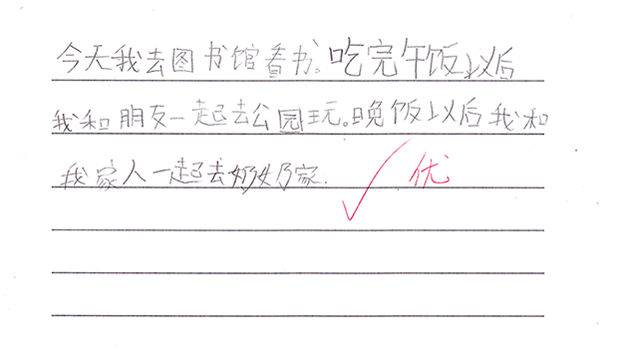 今天我去图书馆看书。吃完午饭以后
我和朋友一起去公园玩。晚饭以后我和
我家人一起去奶奶家.
优